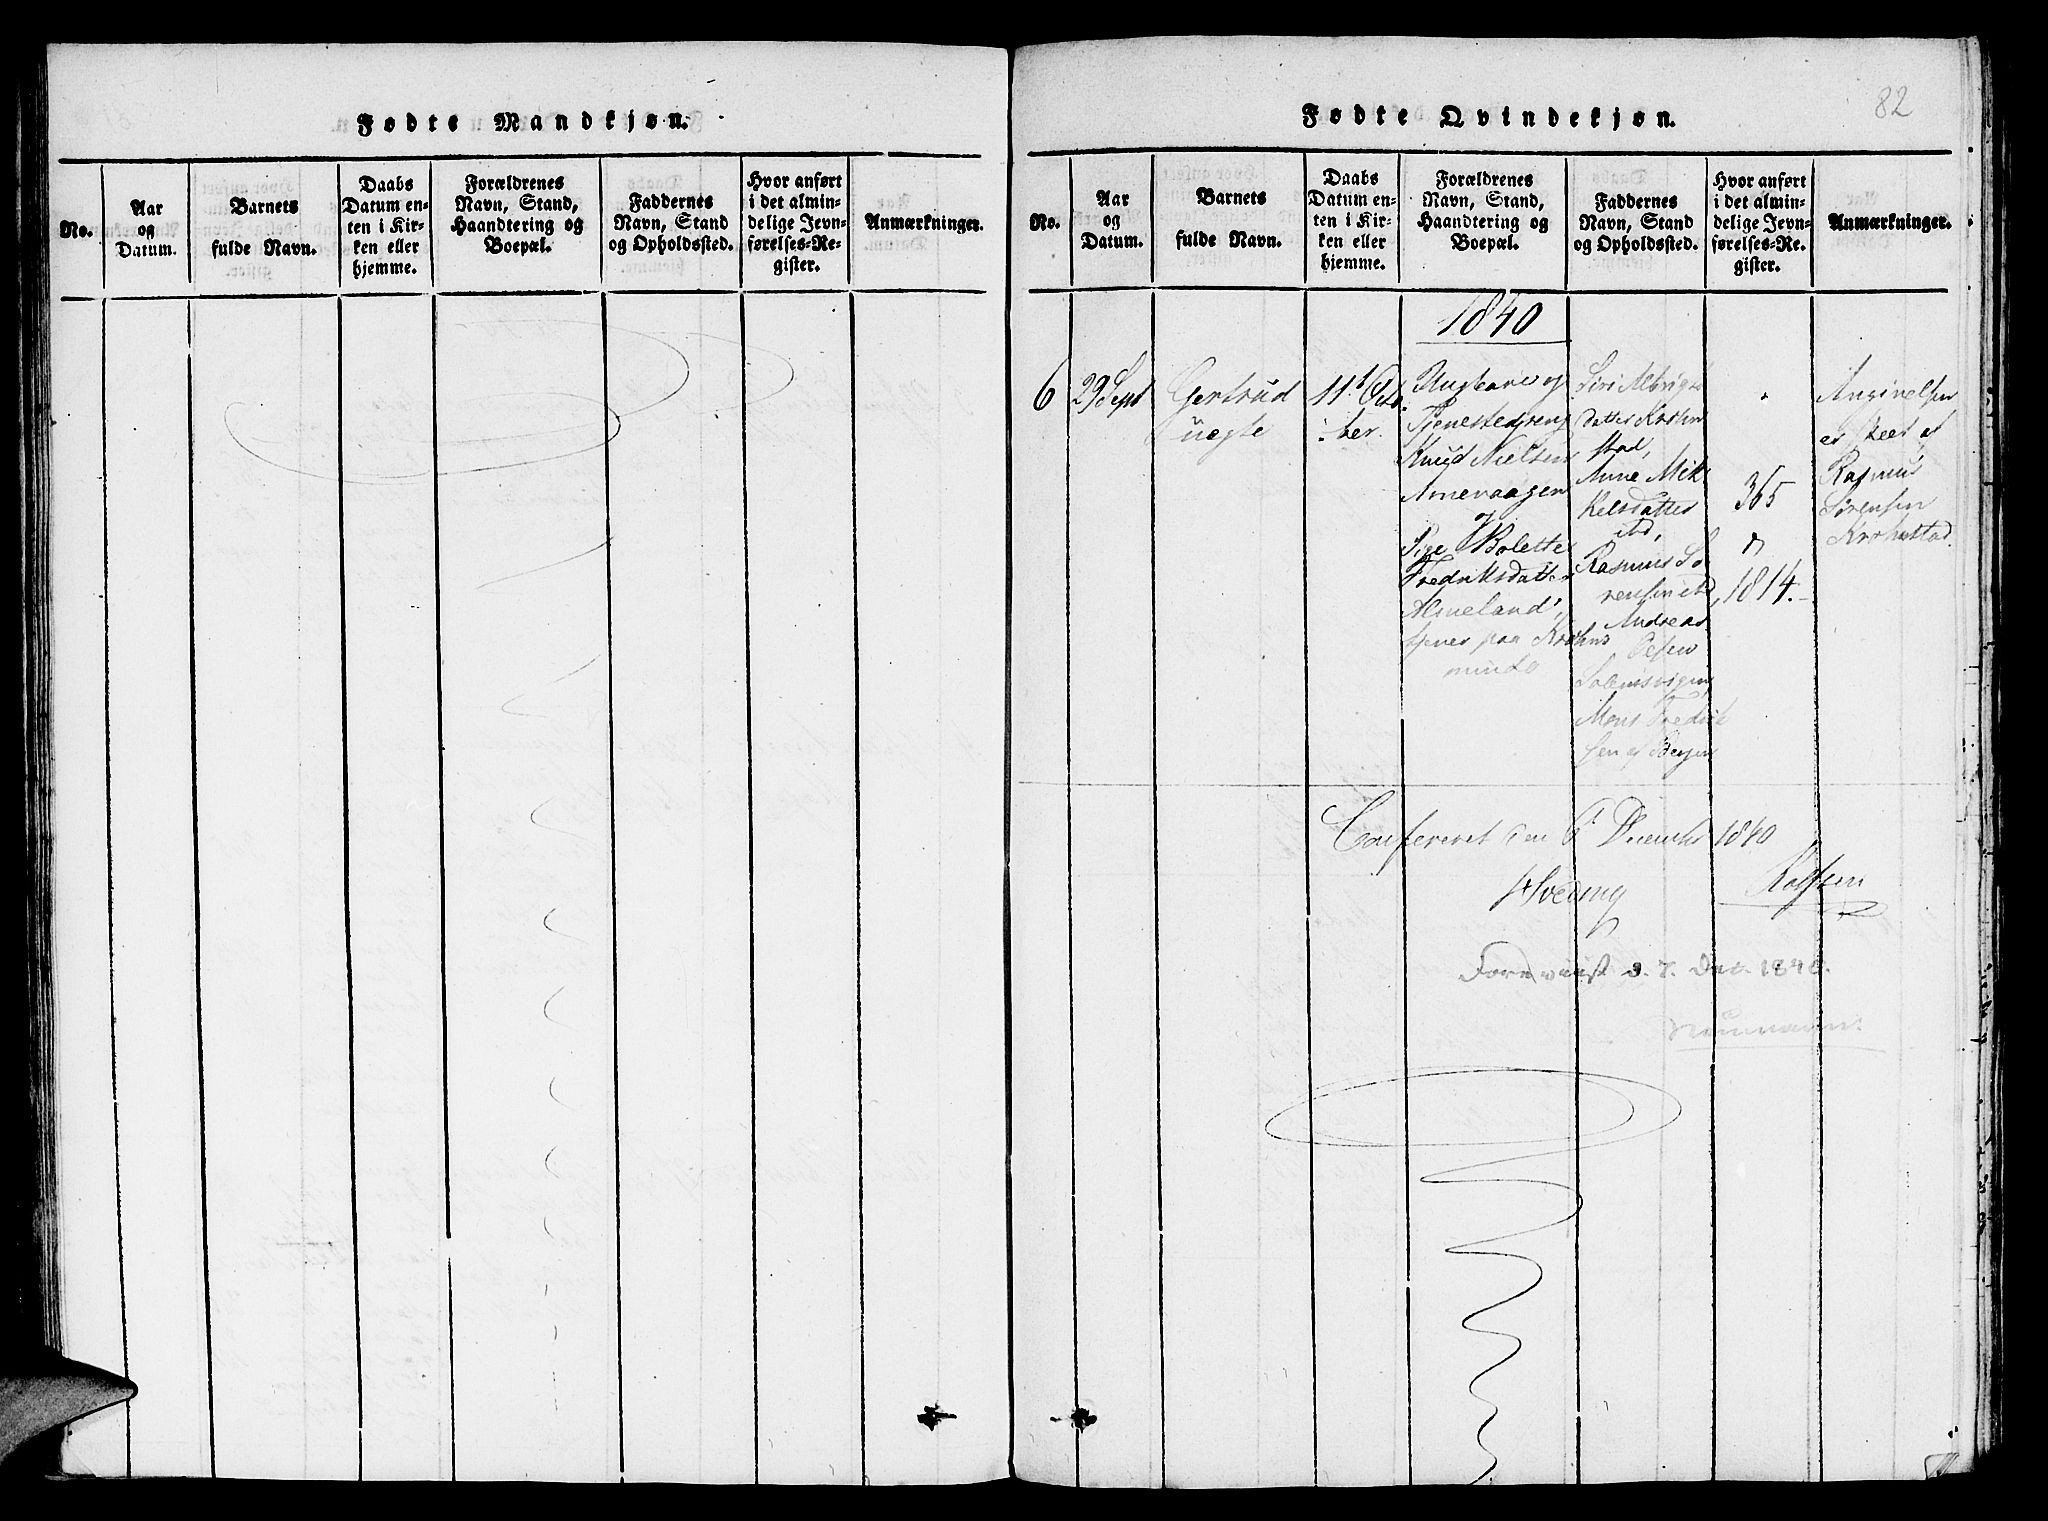 Fødte Mandkjøn.
No.
Aar
og
Datum.
Barnets
fulde Navn.
Daabs
Datum en-
ten i Kir-
ken eller
hjemme.
Forældrenes
Navn, Stand,
Haandtering og
Boepæl.
Faddernes
Navn, Stand
og Opholdssted.
Hvor anført
i det almin-
delige Jevn-
førelses-Re-
gister.
Anmærkninger.
82
Fødte Qvindekjøn.
No.
Aar
og
Datum.
Barnets
fulde Navn.
Daabs
Datum en-
ten i Kir-
ken eller
hjemme.
Forældrenes
Navn, Stand,
Haandtering og
Boepæl.
Faddernes
Navn, Stand
og Opholdssted.
Hvor anført
i det almin-
delige Jevn-
førelses-Re-
gister.
Anmærkninger.
1840
6
29 Sept
Gertrud
uægte
11t Octo
ber.
Ungkarl og
Tjenestedreng
Knud Nielsen
Arnevaagen
og
Pige Bolette
Fredriksdatter
Almeland,
tjener paa Krohns
minde
Siri Albrigts
datter Krohn
stad,
Anne Mik
kelsdatter
ibd,
Rasmus Sø
rensen ibd,
Andreas
Olsen
Solemsvigen,
Mons Fredrik
sen af Bergen
365
&
1814.
Angivelsen
er skeet af
Rasmus
Sørensen
Krohnstad.
Confereret den 6t December 1840
Rolfsen
Foreviist d. 7. Dec. 1840.
Neumann.